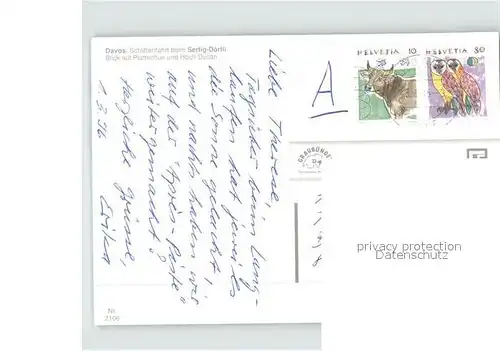 Davos: Schlittenfahrt beim Sertig-Dörfli
Blick auf Plattenfluh und Hoch Ducan
HELVETIA 10
HELVETIA 80
A
Liebe Therese,
Tagsüber beim Lang-
laufen hat jeweils
die Sonne gelacht,
und nachts haben wir
auf der "Après-Piste"
weitergemacht?
Herzliche Grüsse,
Erika
1.3.96
privacy protection
Datenschutz
Nr.
2106